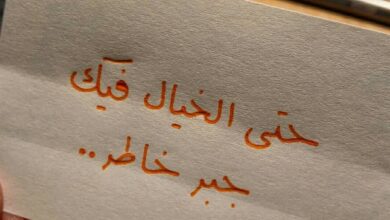 حتى الخيال فيك
جبر خاطر..